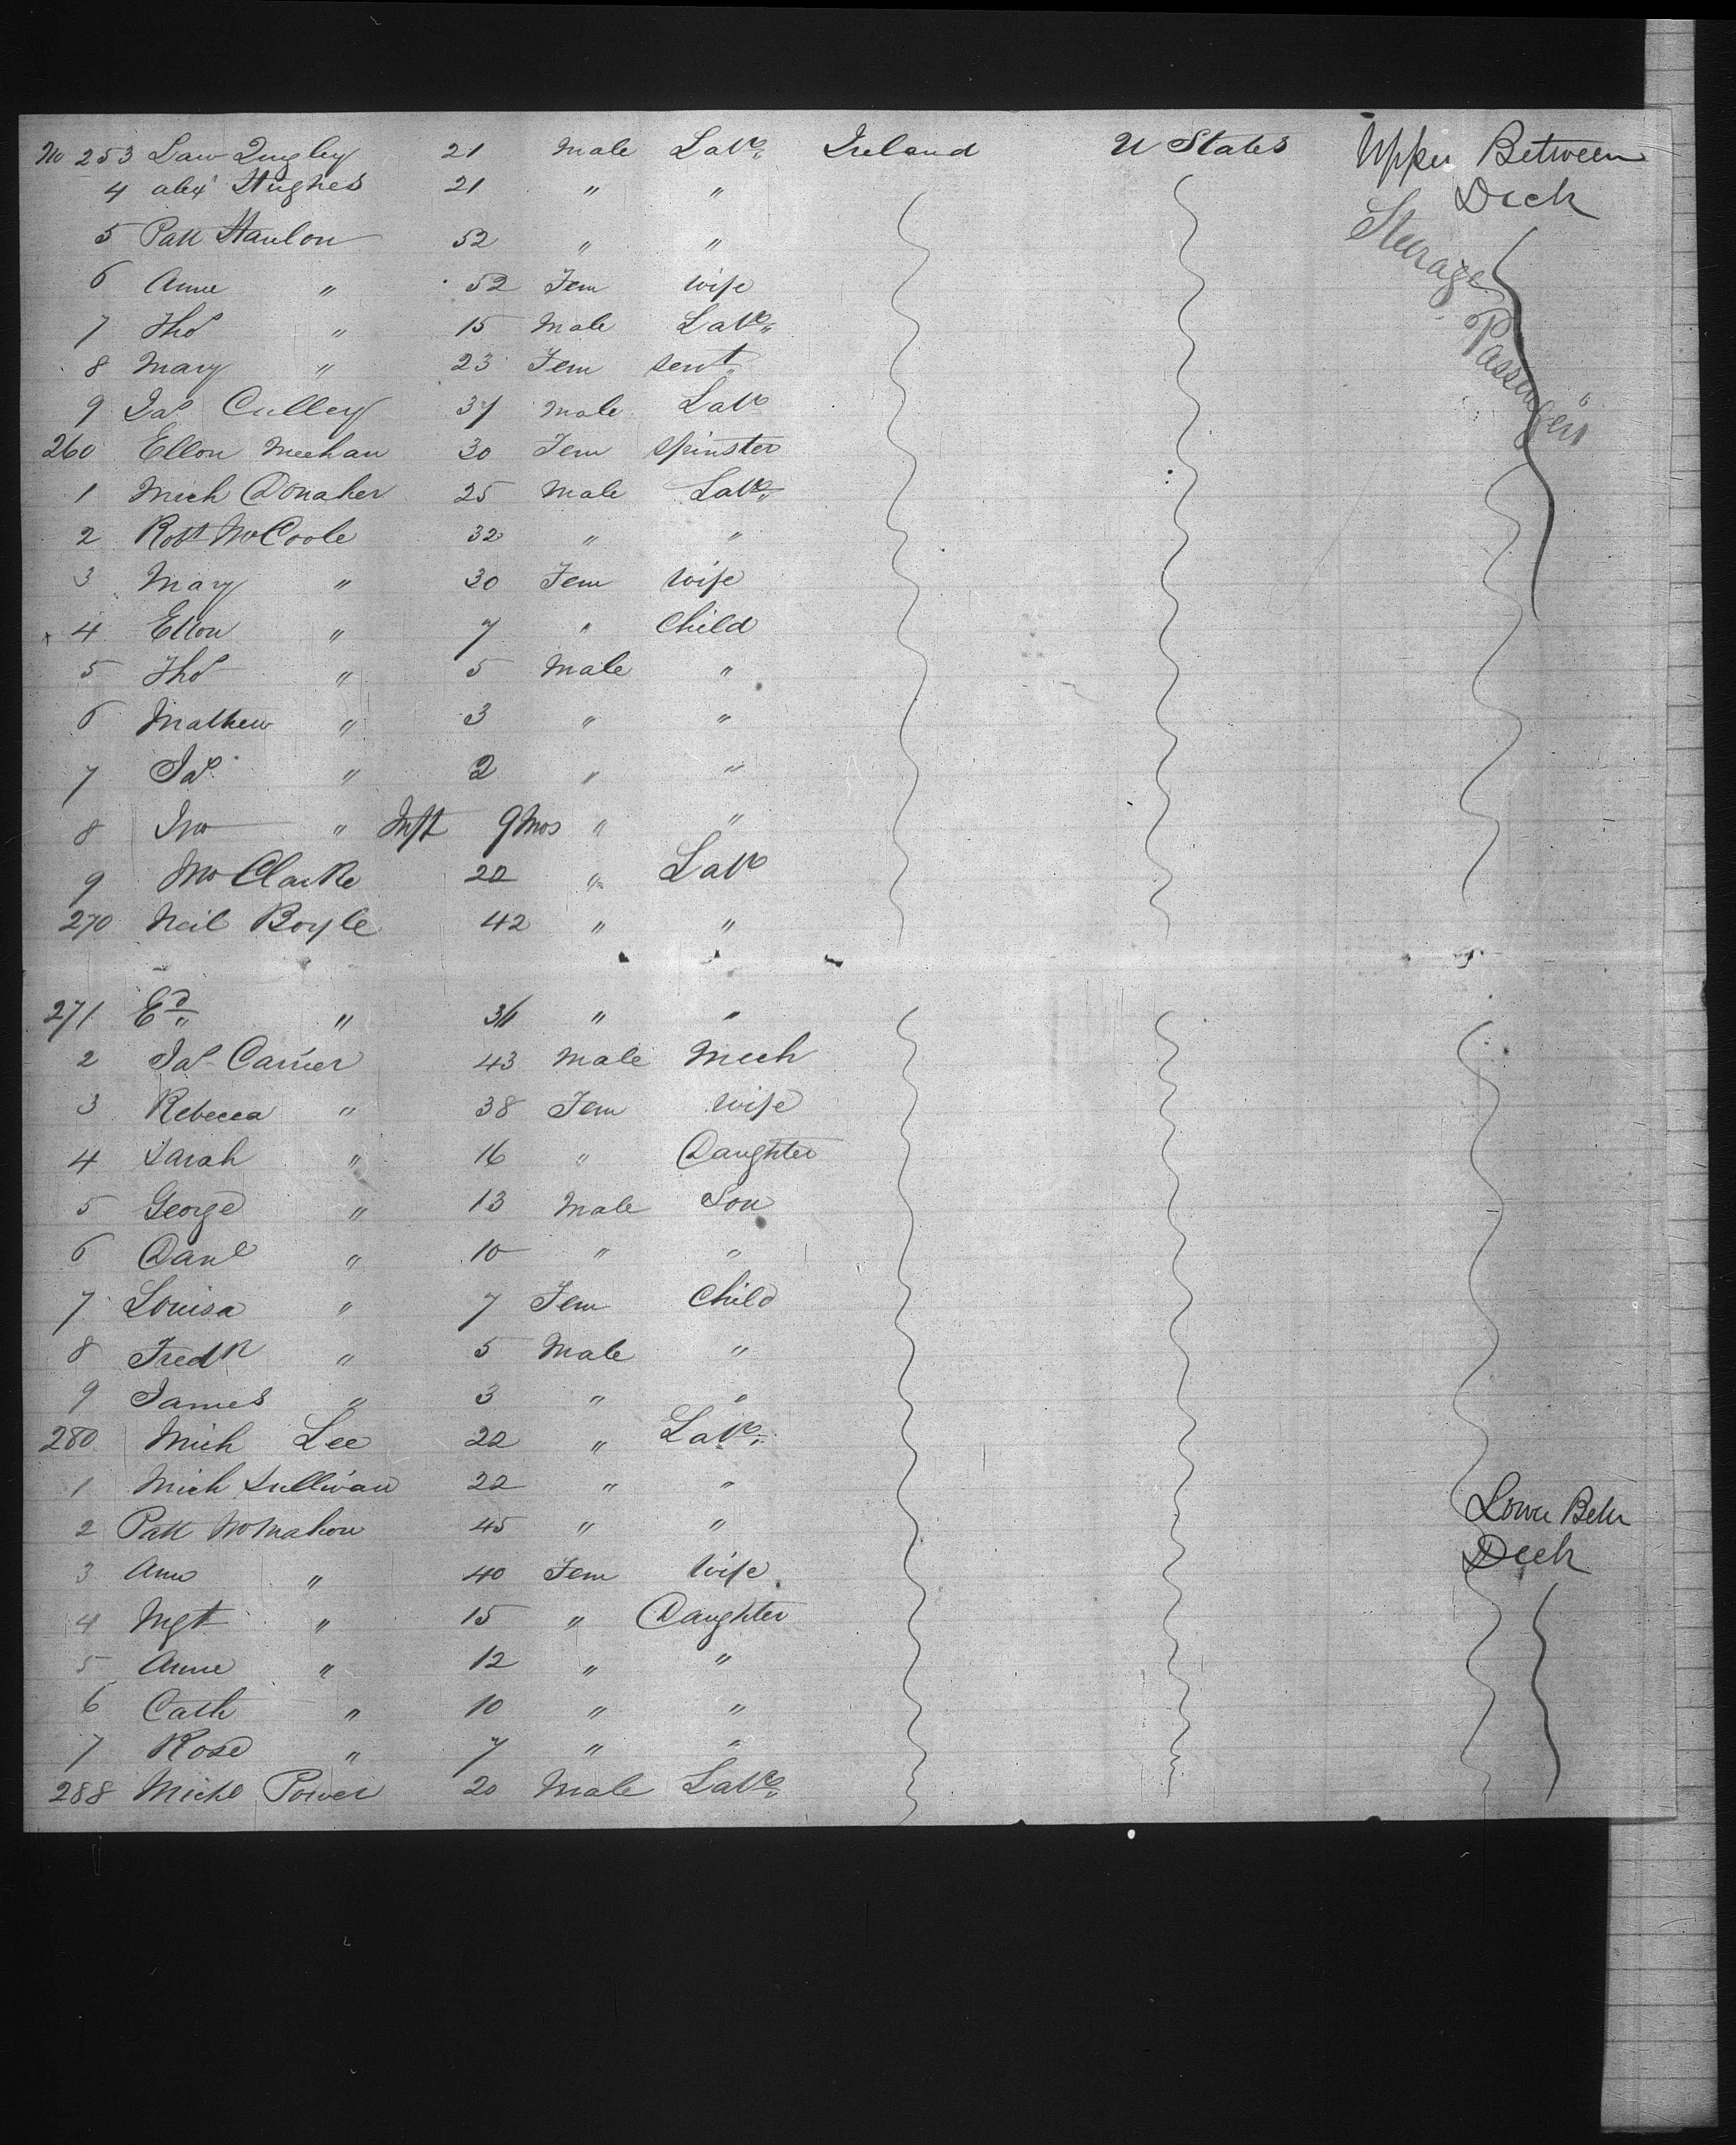 No 253 Law Qugley 21 Male Labr Ireland U States Upper Between
4 Alex Hughes 21 " " Deck
5 Patt Hanlon 52 " " Steerage Passengers
6 Anne " 52 Fem wife
7 Thos " 15 Male Labr
8 Mary " 23 Fem servt
9 Jas Culley 37 Male Labr
260 Ellen Meehan 30 Fem Spinster
1 Mich Donaher 25 Male Labr
2 Robt McCoole 32 " "
3 Mary " 30 Fem wife
x 4 Ellen " 7 " Child
5 Thos " 5 Male "
6 Mathew " 3 " "
7 Jas " 2 " "
8 Jno " Inft 9 Mos " "
9 Jno Clarke 22 " Labr
270 Neil Boyle 42 " "
271 Ed " 36 " "
2 Jas Carrier 43 Male Mech
3 Rebecca " 38 Fem wife
4 Sarah " 16 " Daughter
5 George " 13 Male Son
6 Danl " 10 " "
7 Louisa " 7 Fem Child
8 Fredk " 5 Male "
9 James " 3 " "
280 Mich Lee 22 " Labr
1 Mich Sullivan 22 " "
2 Patt McMahon 45 " " Lower Betn
3 Ann " 40 Fem Wife Deck
4 Mgt " 15 " Daughter
5 Anne " 12 " "
6 Cath " 10 " "
7 Rose " 7 " "
288 Michl Power 20 Male Labr